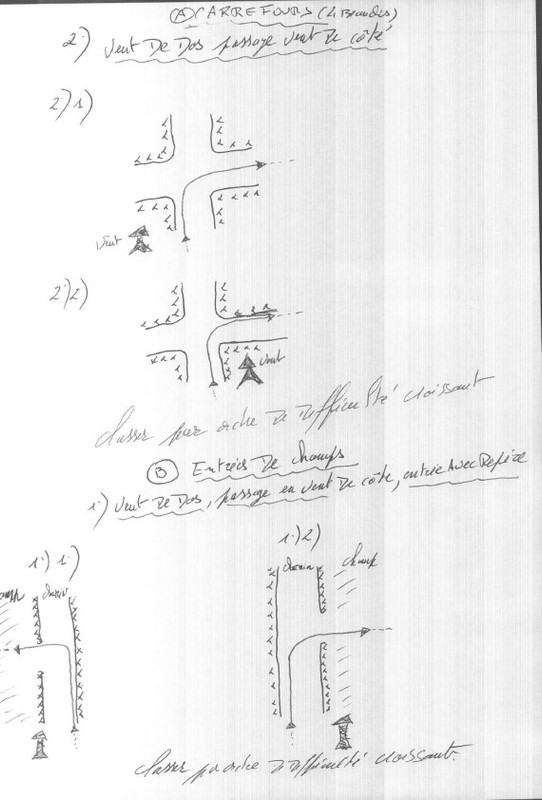 (A) CARREFOURS (4 Branches)
2°) Vent De Dos passage Vent De côté
2°)1)
Vent
2°)2)
Vent
Classer par ordre de difficulté croissant
(B) Entrées De champs
1°) Vent De Dos, passage en Vent De côté, entrée Avec Refize
1°)1)
1°)2)
champ
chemin
chemin
champ
Classer par ordre de difficulté croissant.